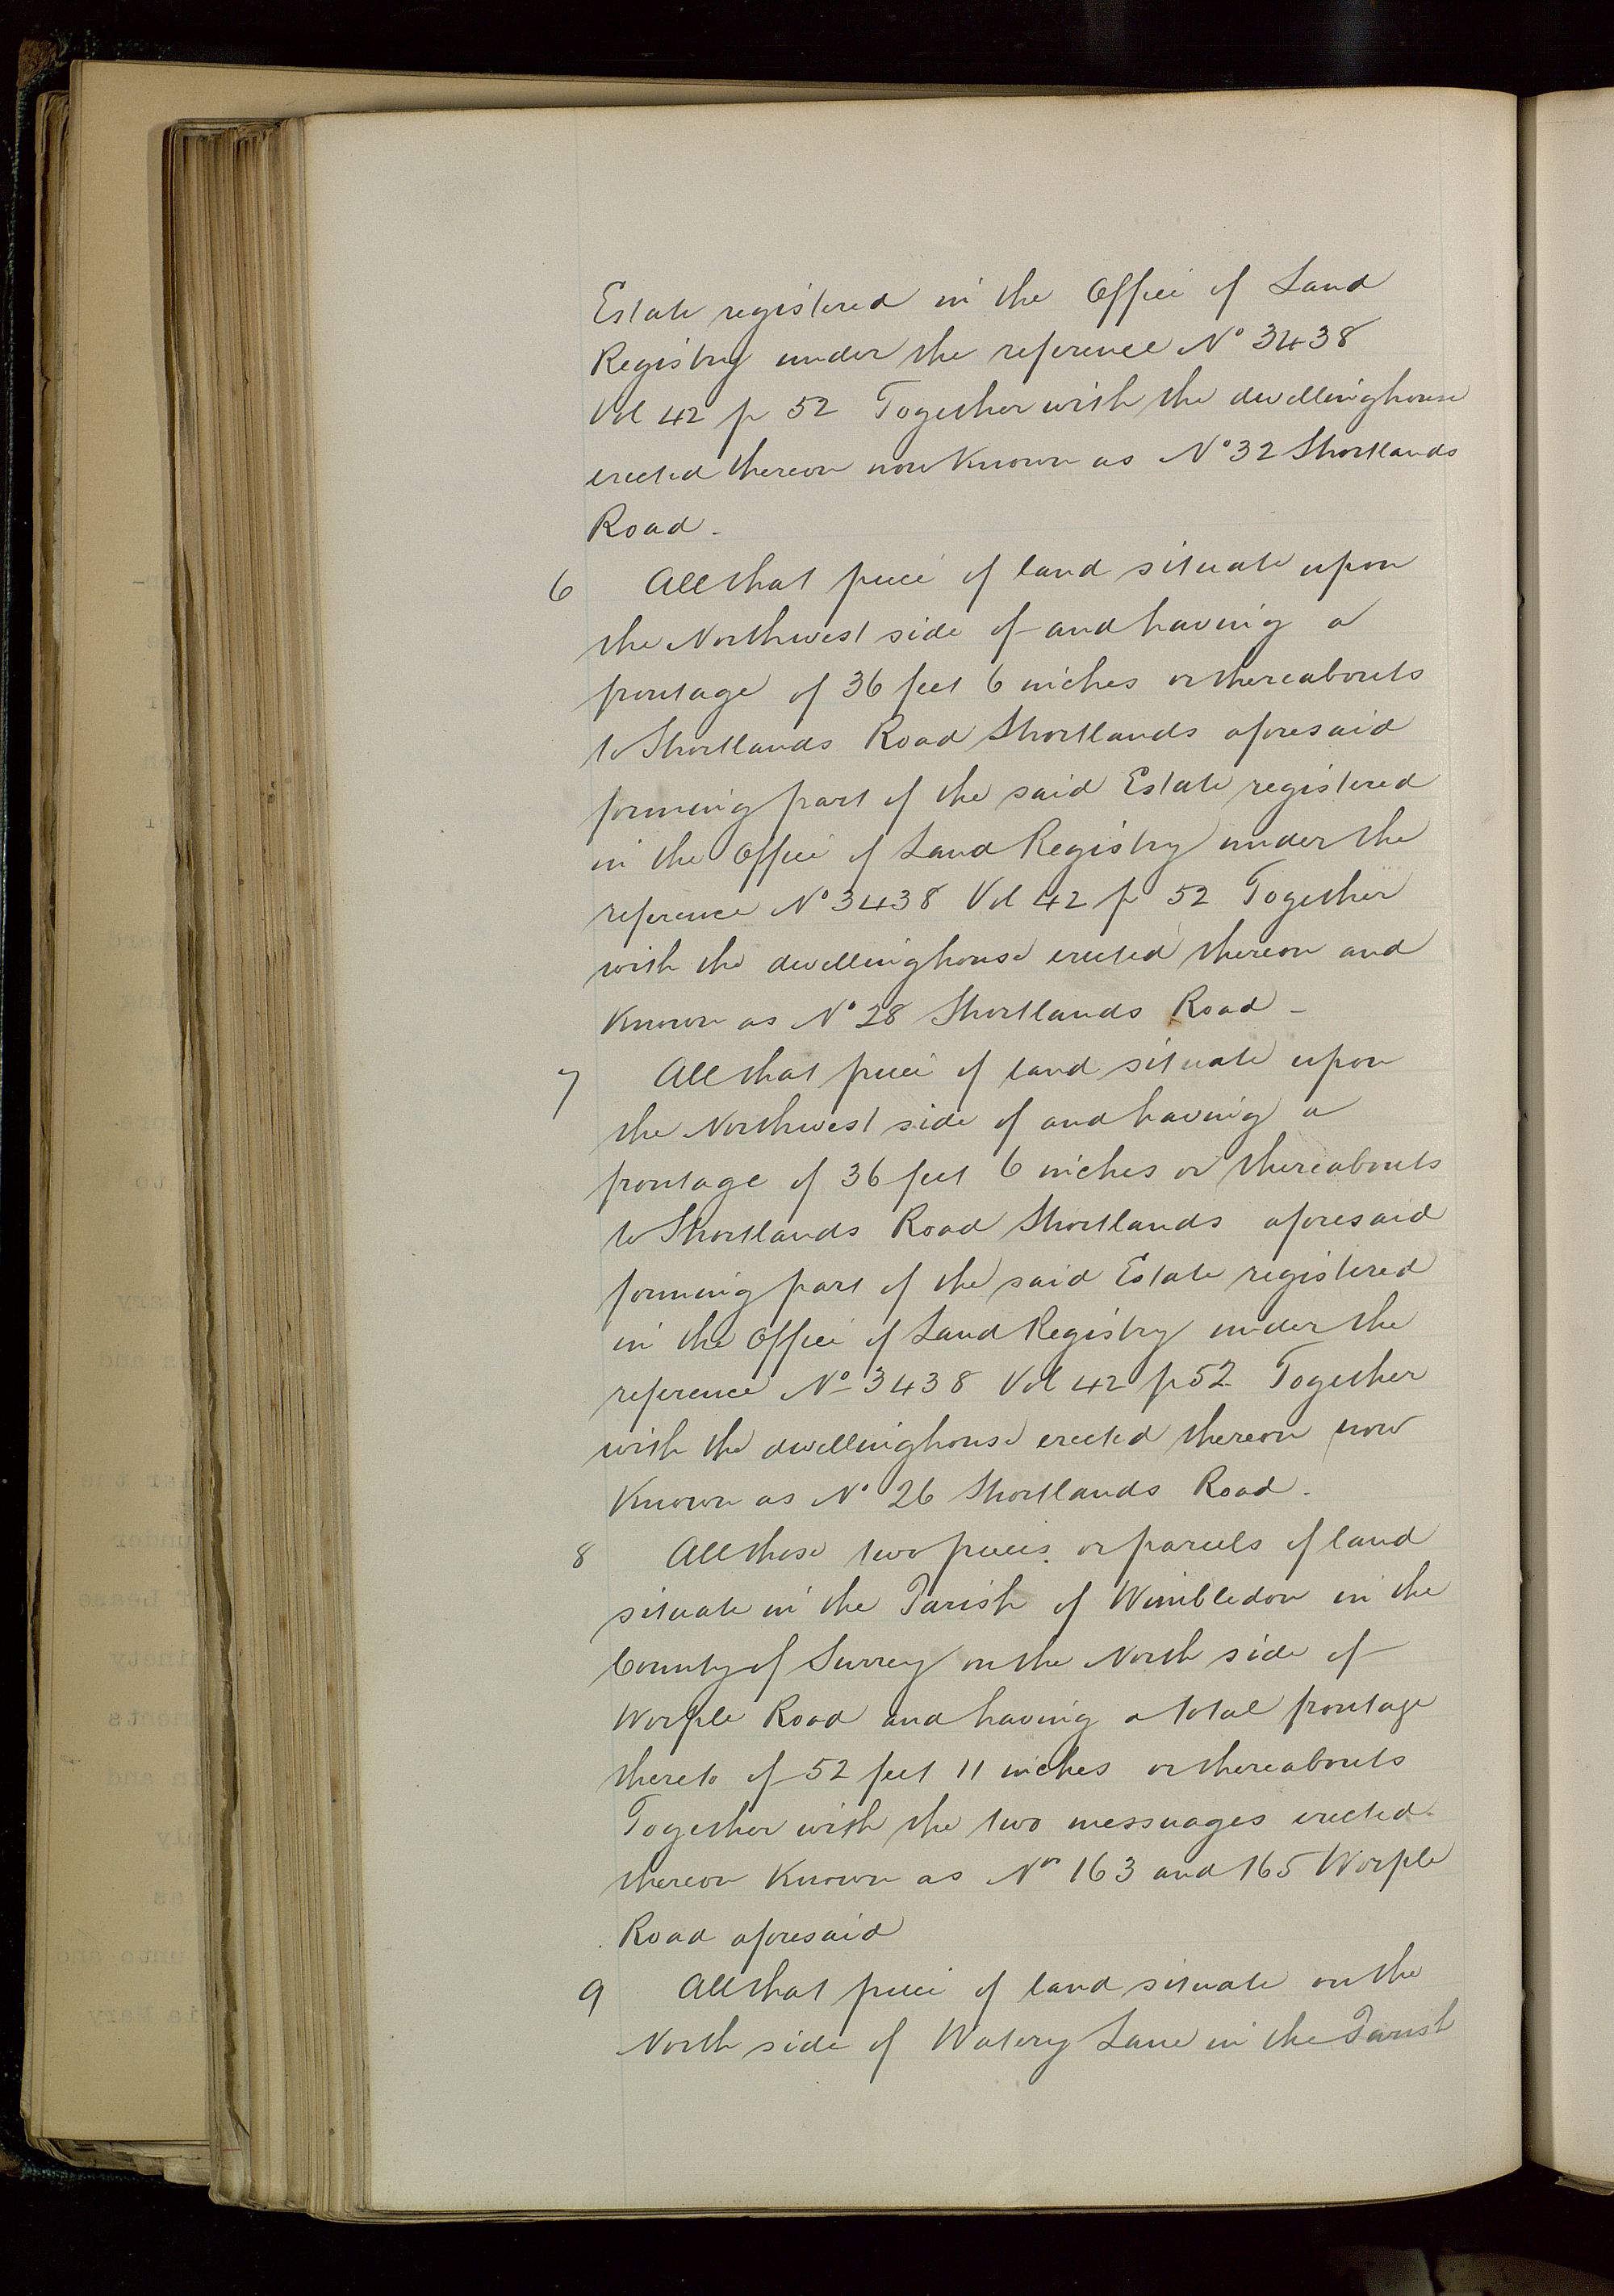 Estate registered in the Office of Land
Registry under the reference No 3438
Vol 42 p 52 Together with the dwellinghouse
erected thereon now known as No 32 Shortlands
Road.
6 All that piece of land situate upon
the Northwest side of and having a
frontage of 36 feet 6 inches or thereabouts
to Shortlands Road Shortlands aforesaid
forming part of the said Estate registered
in the Office of Land Registry under the
reference No 3438 Vol 42 p 52 Together
with the dwellinghouse erected thereon and
known as No 28 Shortlands Road -
7 All that piece of land situate upon
the Northwest side of and having a
frontage of 36 feet 6 inches or thereabouts
to Shortlands Road Shortlands aforesaid
forming part of the said Estate registered
in the Office of Land Registry under the
reference No 3438 Vol 42 p 52 Together
with the dwellinghouse erected thereon now
known as No 26 Shortlands Road.
8 All those two pieces or parcels of land
situate in the Parish of Wimbledon in the
County of Surrey on the North side of
Worple Road and having a total frontage
thereto of 52 feet 11 inches or thereabouts
Together with the two messuages erected
thereon known as Nos 163 and 165 Worple
Road aforesaid
9 All that piece of land situate on the
North side of Watery Lane in the Parish